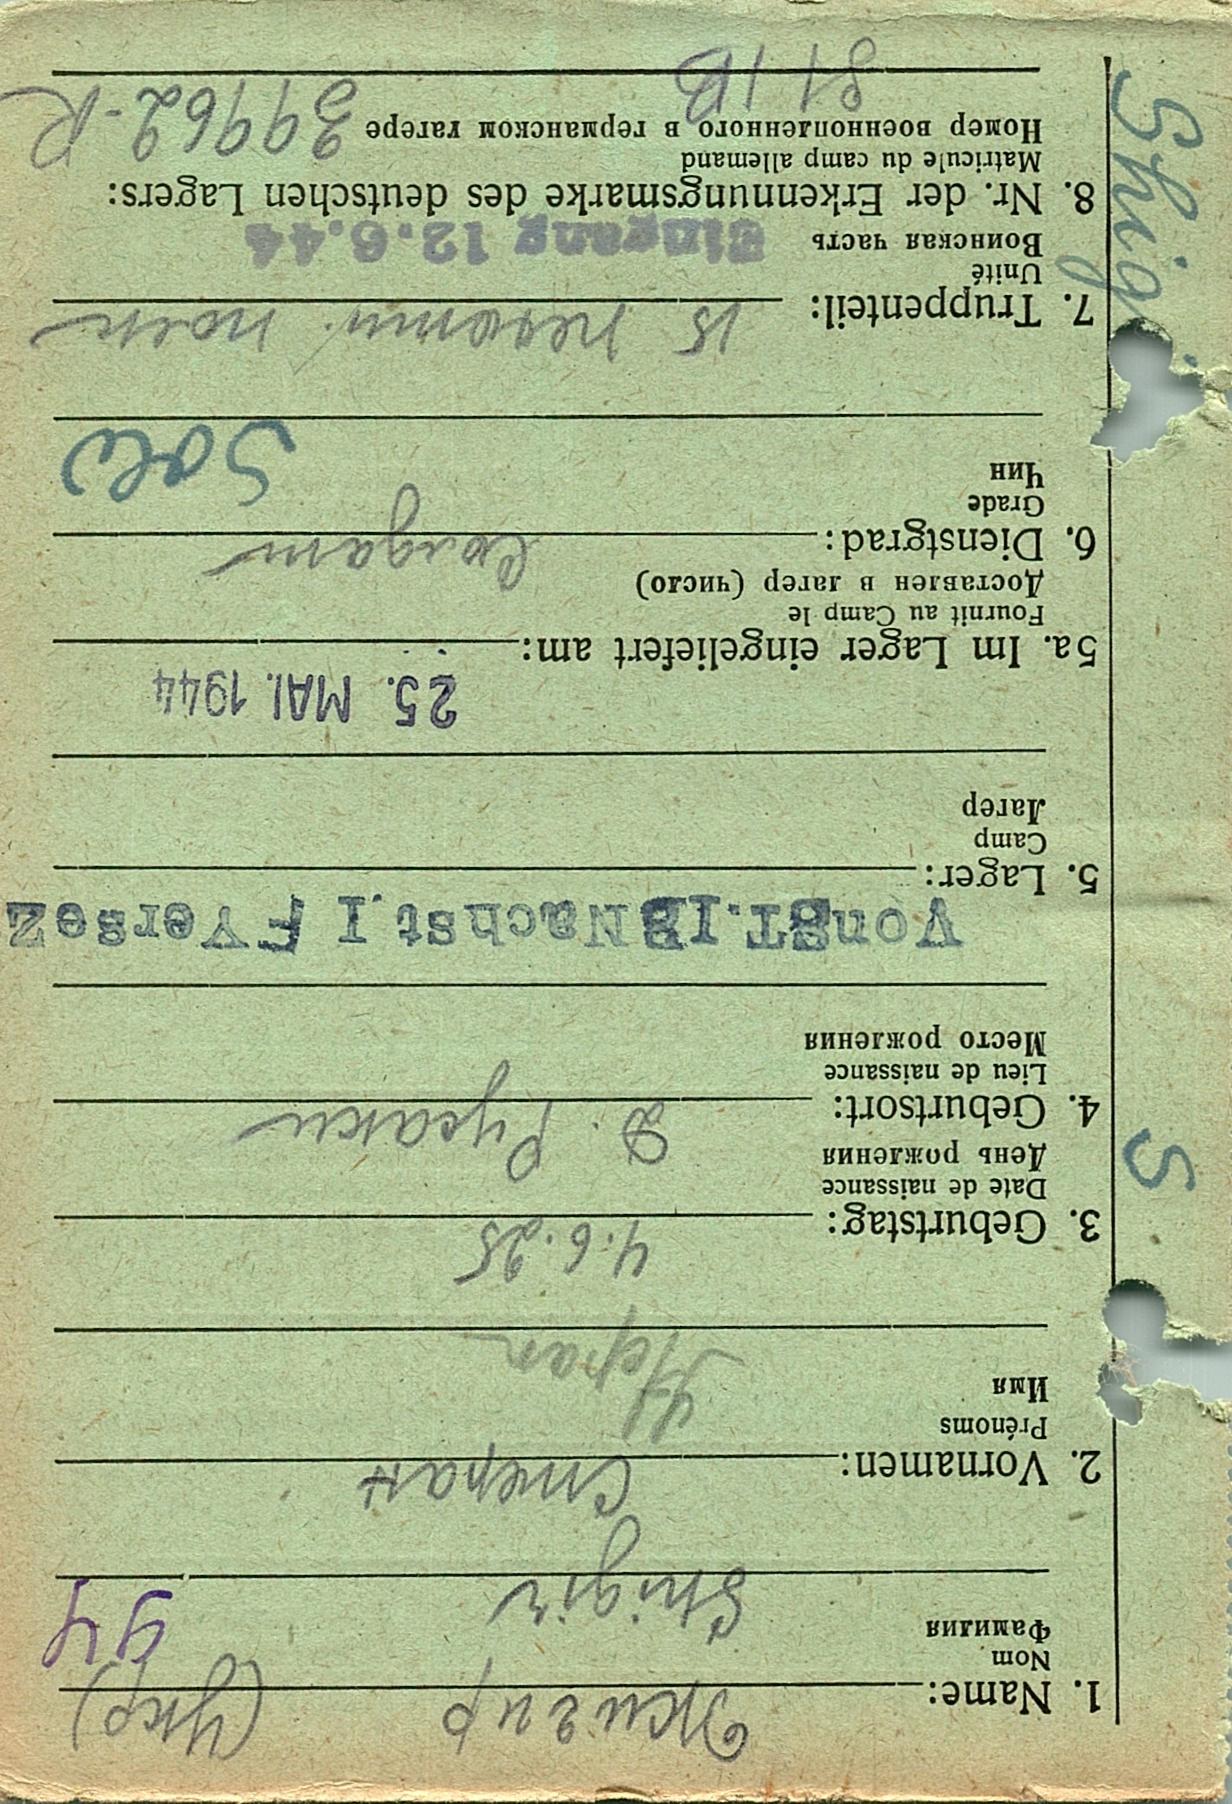 1. Name: Жигир (Укр)
Nom
Фамилия
Shigir
94
2. Vornamen: Степан
Prénoms
Имя
3. Geburtstag: 4.6.25
Date de naissance
День рождения
4. Geburtsort: Д. Русаки
Lieu de naissance
Место рождения
S
5. Lager:
Camp
Лагер
5a. Im Lager eingeliefert am: 25. MAI. 1944
Fournit au Camp le
Доставлен в лагер (число)
6. Dienstgrad: Солдат
Grade
Чин
Sow
7. Truppenteil: 15 пехотн. полк
Unité
Воинская часть
Eingang 12.6.44
8. Nr. der Erkennungsmarke des deutschen Lagers:
Matricule du camp allemand
Номер военнопленного в германском лагере 39962-R
Shigi